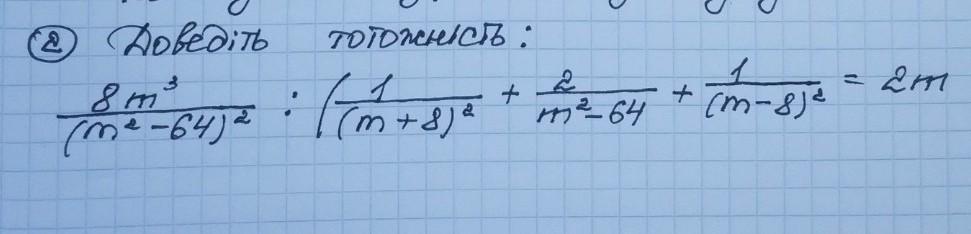 ② Доведіть тотожність:
8m³/(m²-64)² : (1/(m+8)² + 2/(m²-64) + 1/(m-8)² = 2m